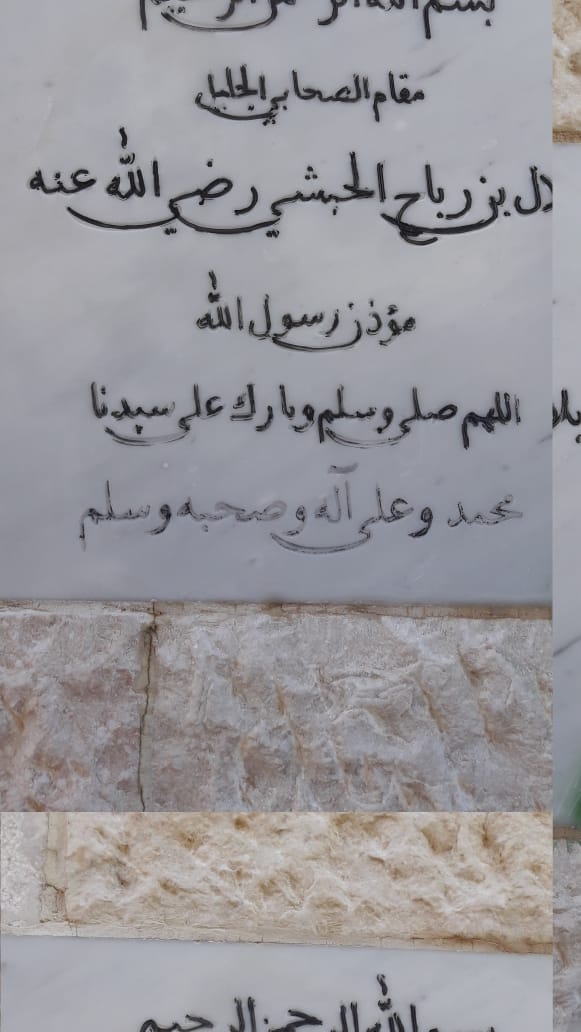 بسم الله الرحمن الرحيم
مقام الصحابي الجليل
بن رباح الحبشي رضي الله عنه
مؤذن رسول الله
اللهم صلي وسلم وبارك على سيدنا
محمد وعلى آله وصحبه وسلم
الله الرحمن الرحيم